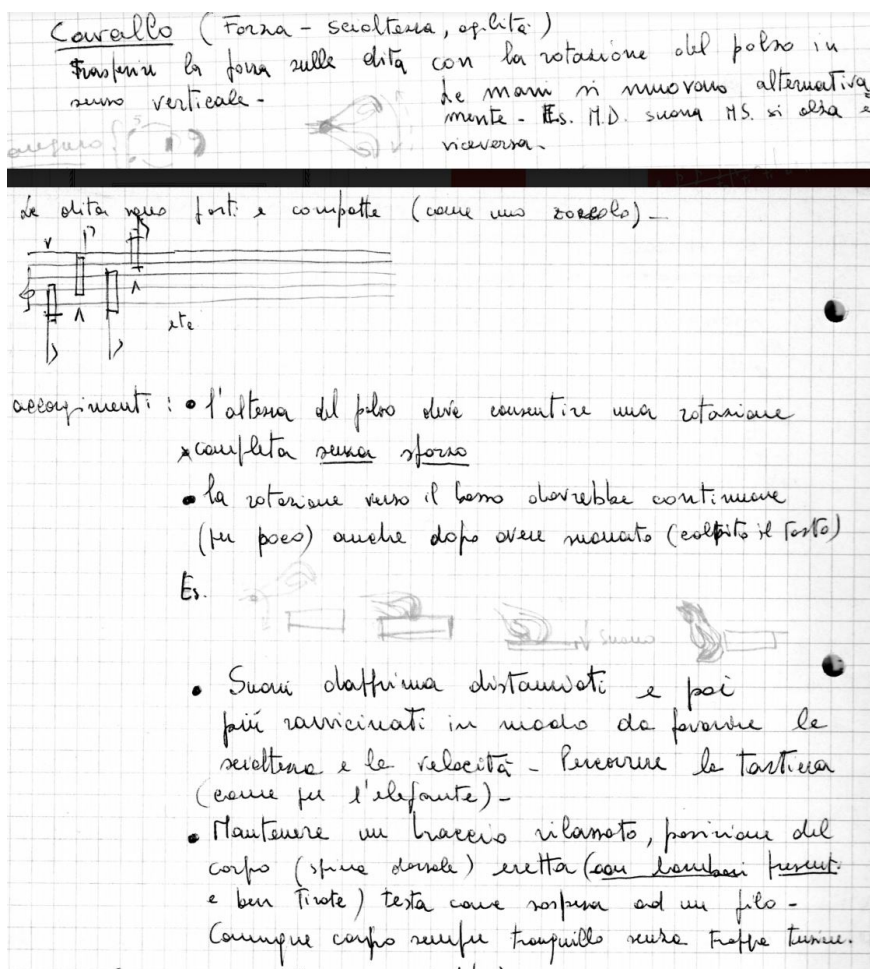 Cavallo (Forza - scioltezza, agilità)
Trasferire la forza sulle dita con la rotazione del polso in
senso verticale -
Le mani si muovono alternativa
mente - Es. M.D. suona MS. si alza e
viceversa.
Le dita sono forti e compatte (come uno zoccolo) -
etc
accorgimenti : • l'altezza del polso deve consentire una rotazione
completa senza sforzo
• la rotazione verso il basso dovrebbe continuare
(per poco) anche dopo avere suonato (colpito il tasto)
Es.
suono
• Suoni dapprima distanziati e poi
più ravvicinati in modo da favorire la
scioltezza e la velocità - Percorrere la tastiera
(come per l'elefante) -
• Mantenere un braccio rilassato, posizione del
corpo (spina dorsale) eretta (con lombari present.
e ben tirate) testa come sospesa ad un filo -
Comunque corpo sempre tranquillo senza troppe tensioni.